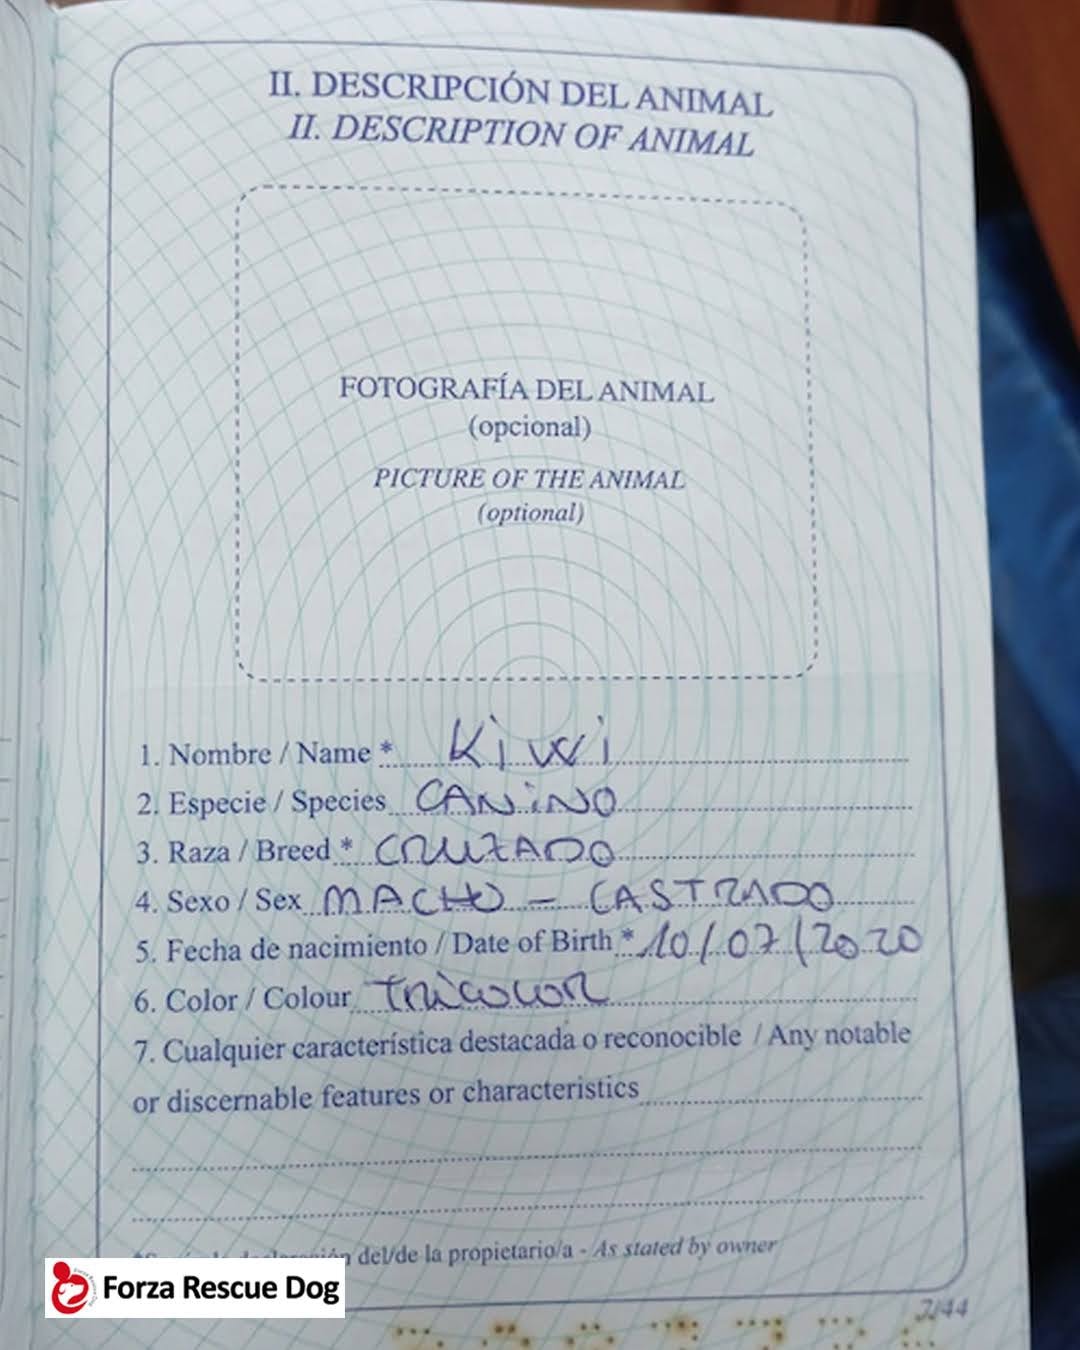 II. DESCRIPCIÓN DEL ANIMAL
II. DESCRIPTION OF ANIMAL
FOTOGRAFÍA DEL ANIMAL
(opcional)
PICTURE OF THE ANIMAL
(optional)
1. Nombre / Name * Kiwi
2. Especie / Species CANiNO
3. Raza / Breed * CRUZADO
4. Sexo / Sex MACHO - CASTRADO
5. Fecha de nacimiento / Date of Birth * 10/07/2020
6. Color / Colour Tricolor
7. Cualquier característica destacada o reconocible / Any notable
or discernable features or characteristics
del/de la propietario/a - As stated by owner
Forza Rescue Dog
7/44